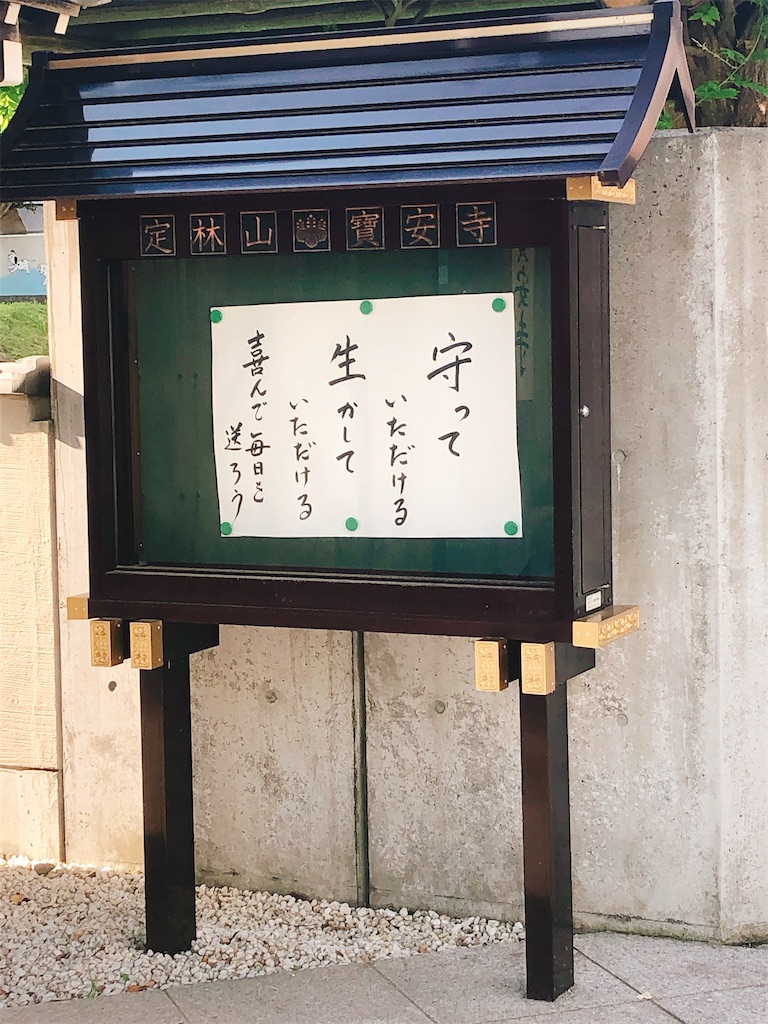 定林山寶安寺
守って
いただける
生かして
いただける
喜んで毎日を
送ろう